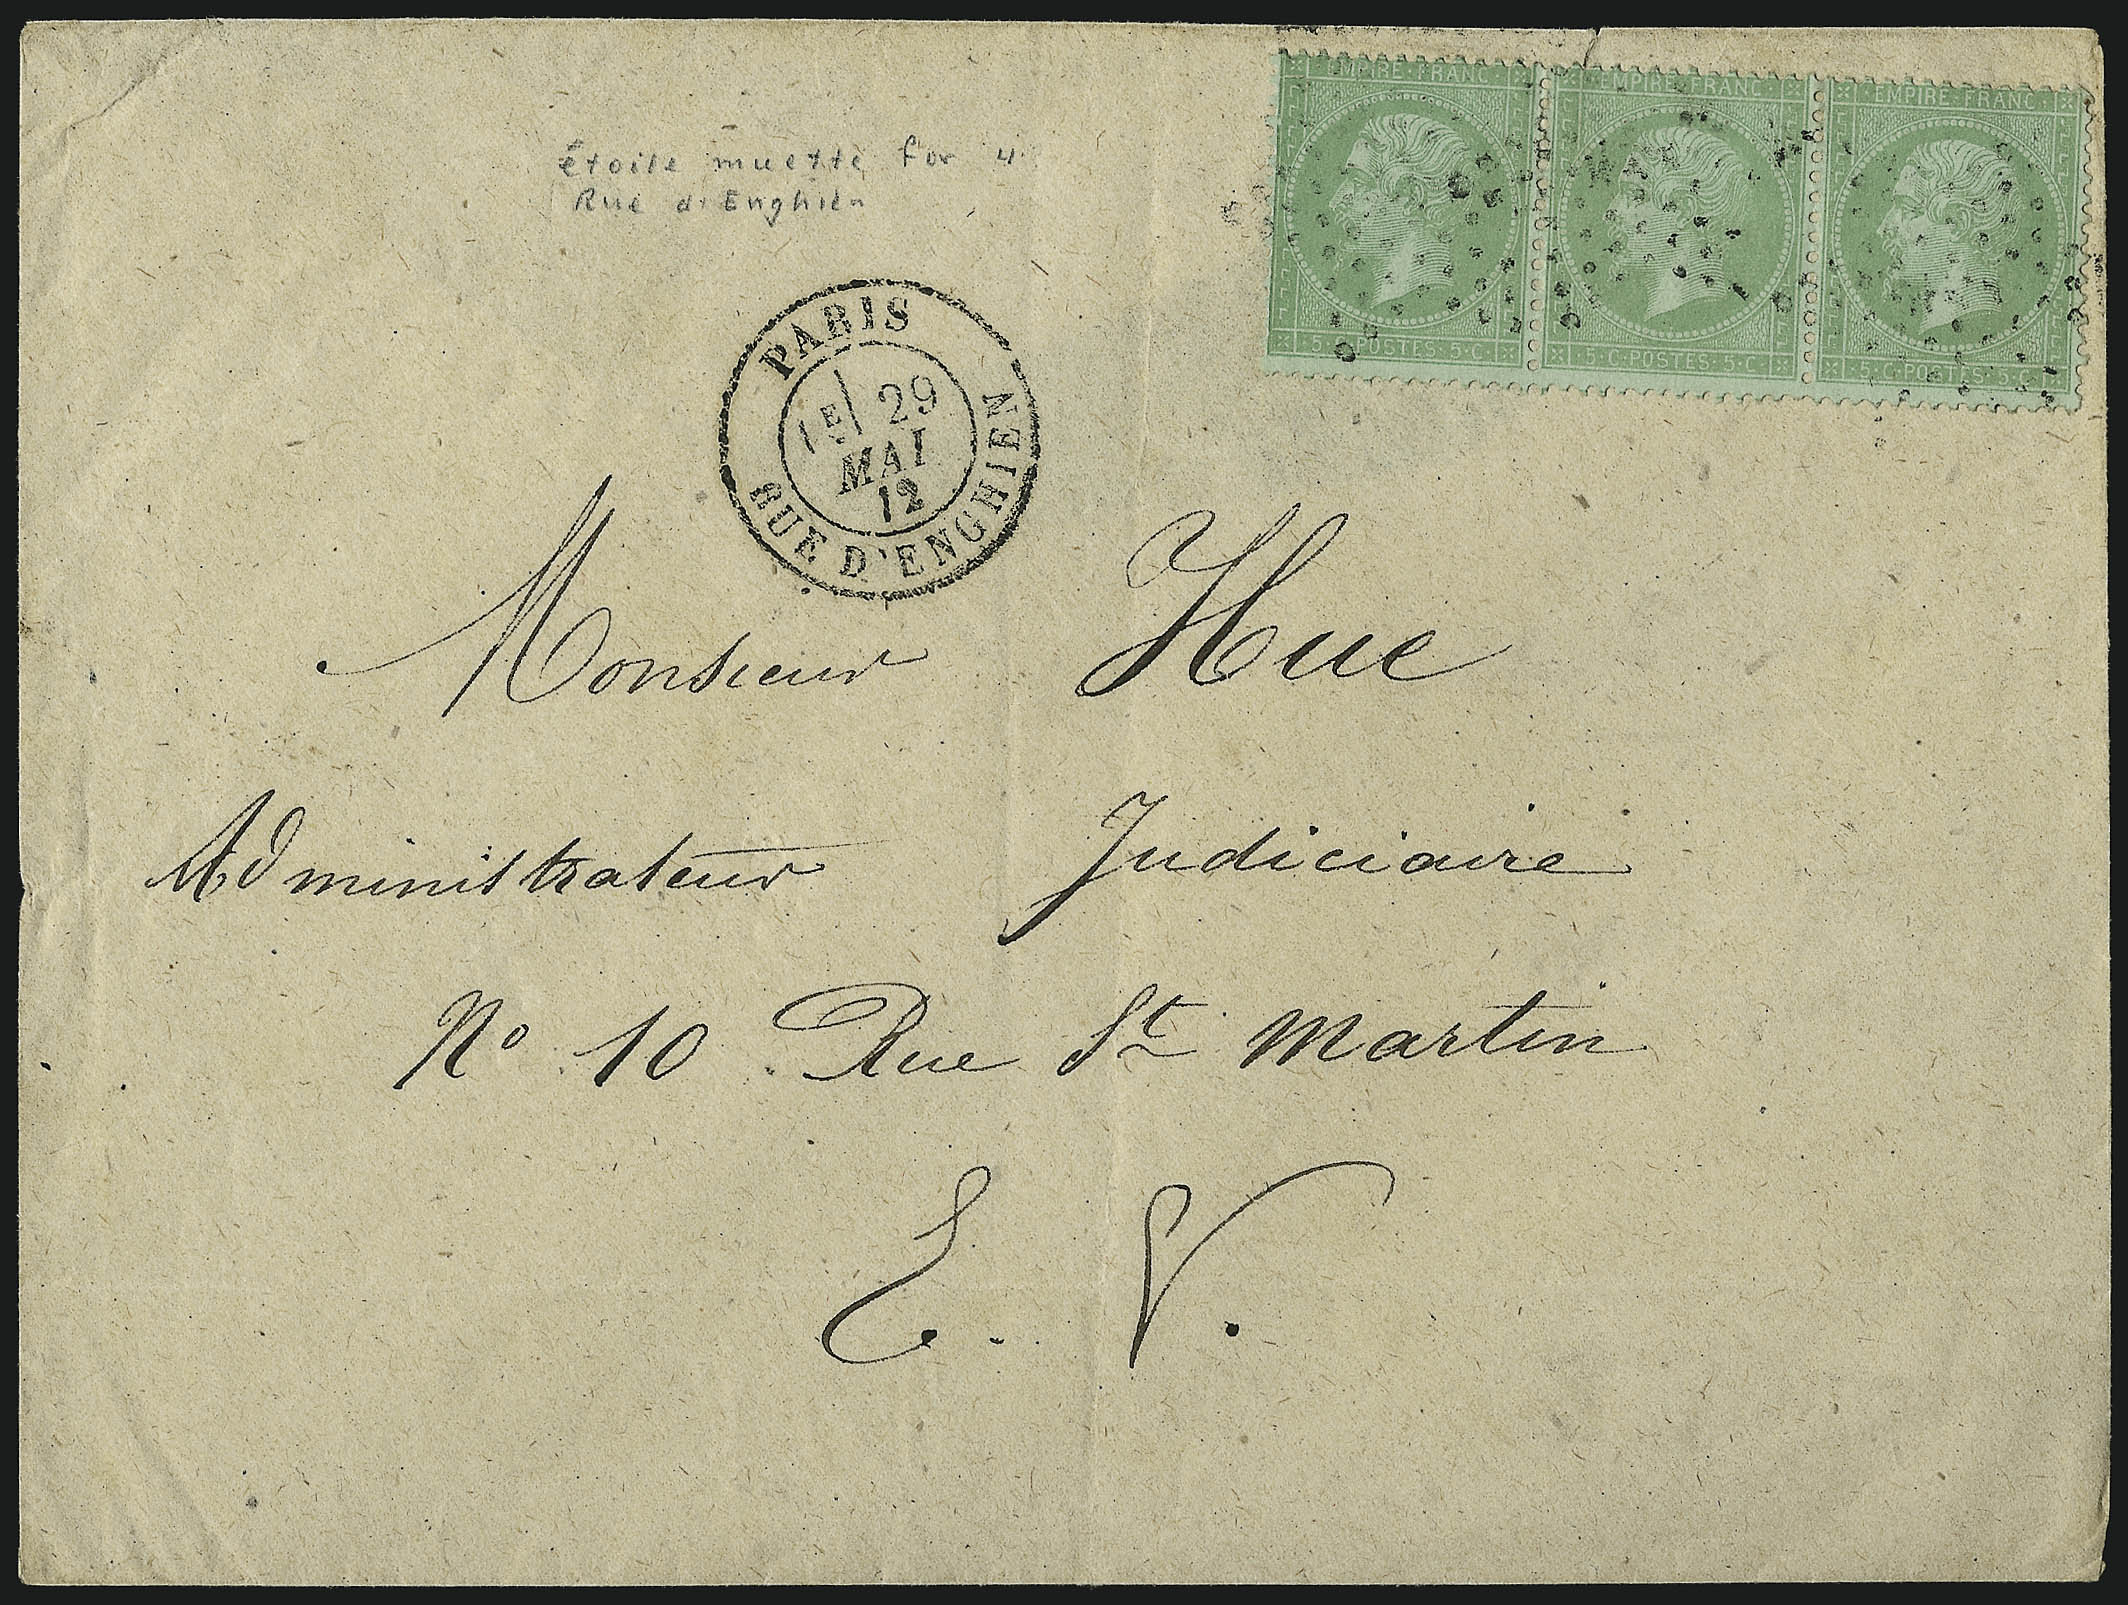 EMPIRE·FRANC· EMPIRE·FRANC· EMPIRE·FRANC·
étoile muette for 4
Rue d'Enghien
·5·C·POSTES·5·C· ·5·C·POSTES·5·C· ·5·C·POSTES·5·C·
PARIS
1 E 29
MAI
72
RUE D'ENGHIEN
Monsieur Hue
Administrateur Judiciaire
No 10 Rue St Martin
E. V.